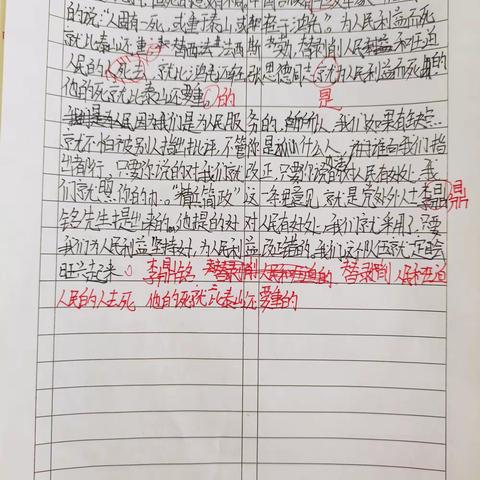 的说"人固有一死,或重于泰山,或轻于鸿毛。"为人民利益而死
就比泰山还重,替法西斯卖力,替剥削人民和压迫
人民的人死去,就比鸿毛还轻。张思德同志就为人民利益而死的。
他的死就比泰山还要重。的 是
因为我们是为人民服务的,所以,我们如果有缺点
就不怕被别人指出批评,不管你是什么人,谁向我们指
出者行,只要你说的对我们就改正,只要你说的对人民有好处,我
们就照你的办。"精兵简政"这一条意见,就是党外人士李鼎
铭先生提出来的。他提的对,对人民有好处,我们就采用了,只要
我们为人民利益坚持对,为人民利益改错的,我们这个队伍就一定会
旺兴起来。李鼎铭 替剥削人民和压迫
人民的人去死 他的死就比泰山还要重的